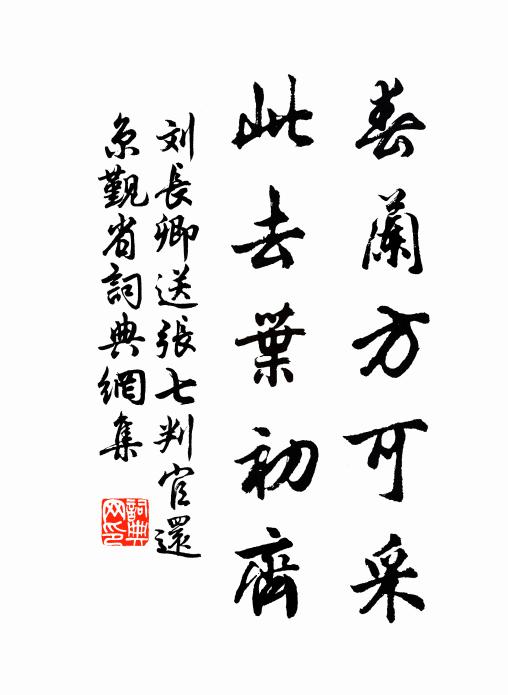 春蘭方可采
此去葉初齊
刘長卿送張七判官還
京覲省詞典網集
詞典
网印